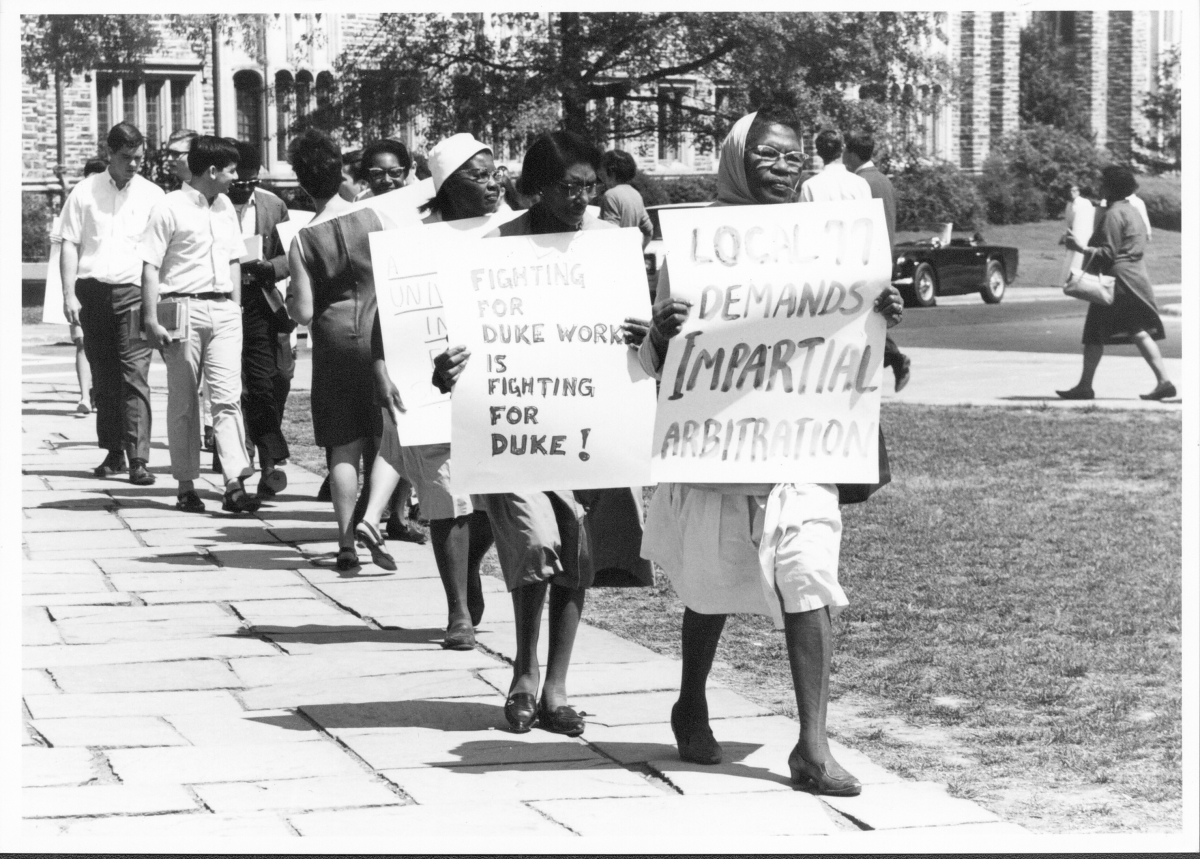 FIGHTING
FOR
DUKE WORK
IS
FIGHTING
FOR
DUKE!
LOCAL 77
DEMANDS
IMPARTIAL
ARBITRATION
A
UNI
IN